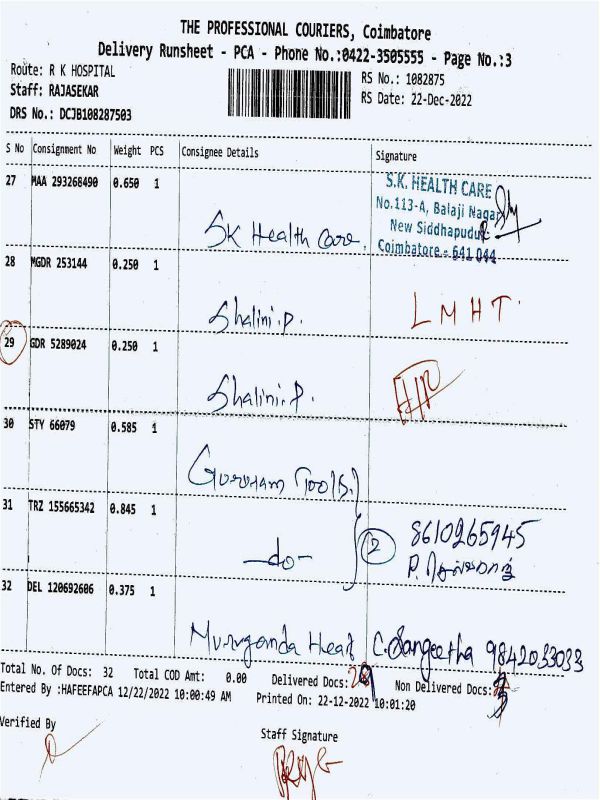 THE PROFESSIONAL COURIERS, Coimbatore
Delivery Runsheet - PCA - Phone No.:0422-3505555 - Page No.:3
Route: R K HOSPITAL
RS No.: 1082875
Staff: RAJASEKAR
RS Date: 22-Dec-2022
DRS No.: DCJB108287503
S No Consignment No Weight PCS Consignee Details Signature
27 MAA 293268490 0.650 1 SK Health Care.
S.K. HEALTH CARE
No.113-A, Balaji Nagar
New Siddhapudur
Coimbatore - 641 044
28 MGDR 253144 0.250 1 Shalini.P. LMHT.
29 GDR 5289024 0.250 1 Shalini.P.
30 STY 66079 0.585 1 Guruvam Tools.
31 TRZ 155665342 0.845 1 -do- 2 8610265945
32 DEL 120692606 0.375 1 C.Sangeetha 9842033033
Total No. Of Docs: 32 Total COD Amt: 0.00 Delivered Docs: Non Delivered Docs:
Entered By :HAFEEFAPCA 12/22/2022 10:00:49 AM Printed On: 22-12-2022 10:01:20
Verified By
Staff Signature